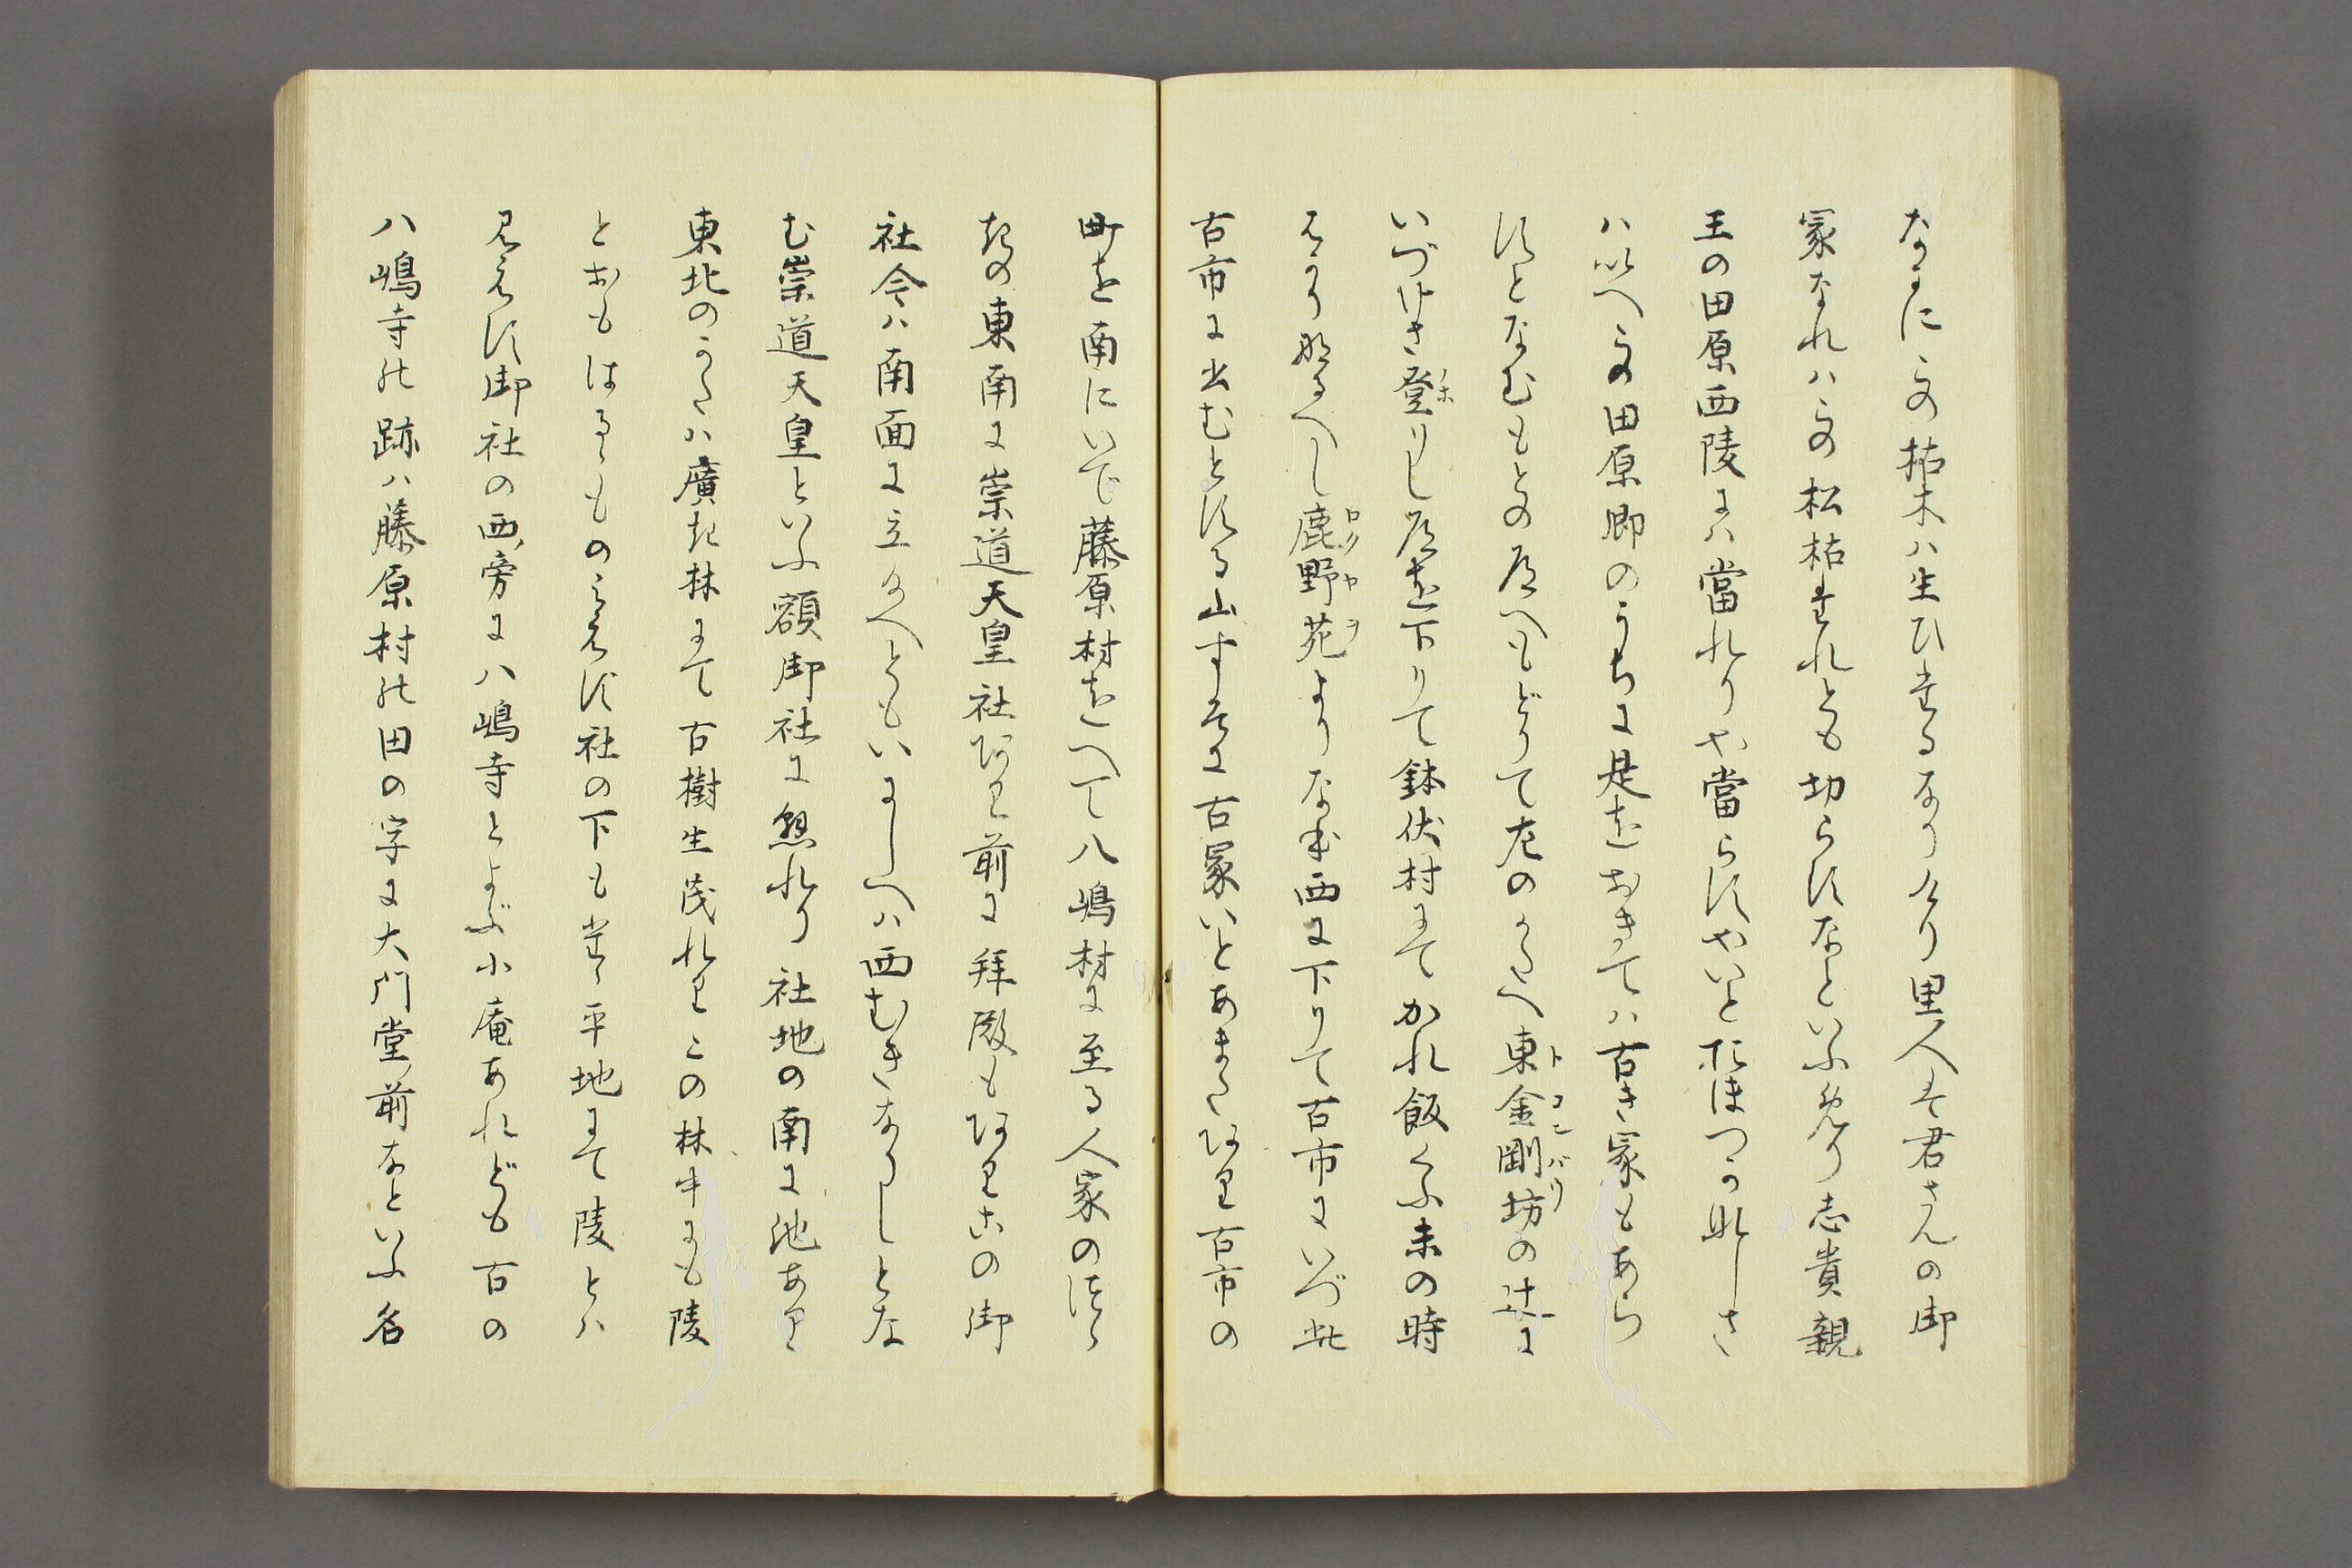 なかにこの枯木ハ生ひたるなりけり里人そ君さんの御
冢なれハこの松枯たれとも切らすなといふめり志貴親
王の田原西陵にハ當れりや當らすやいとおほつかなしさ
ハいへこの田原郷のうちに是をおきてハ古き冢もあら
すとなむもとの道へもどりて左のかたへ東金剛坊の辻に
いづけさ登りし道を下りて鉢伏村にてかれ飯くふ未の時
はかりなるへし鹿野苑よりなほ西に下りて古市にいづ此
古市に出むとする山すそに古冢いとあまたあり古市の
町を南にいで藤原村をへて八嶋村に至る人家のつゝ
きの東南に崇道天皇社あり前に拝殿もありこの御
社今ハ南面に立給へともいにしへハ西むきなりしとな
む崇道天皇といふ額御社に懸れり社地の南に池あり
東北のかたハ廣き林にて古樹生茂れりこの林中にも陵
とおもはるゝもの見えす社の下もたゝ平地にて陵とハ
見えす御社の西旁に八嶋寺とよぶ小庵あれども古の
八嶋寺の跡ハ藤原村の田の字に大門堂前なといふ名